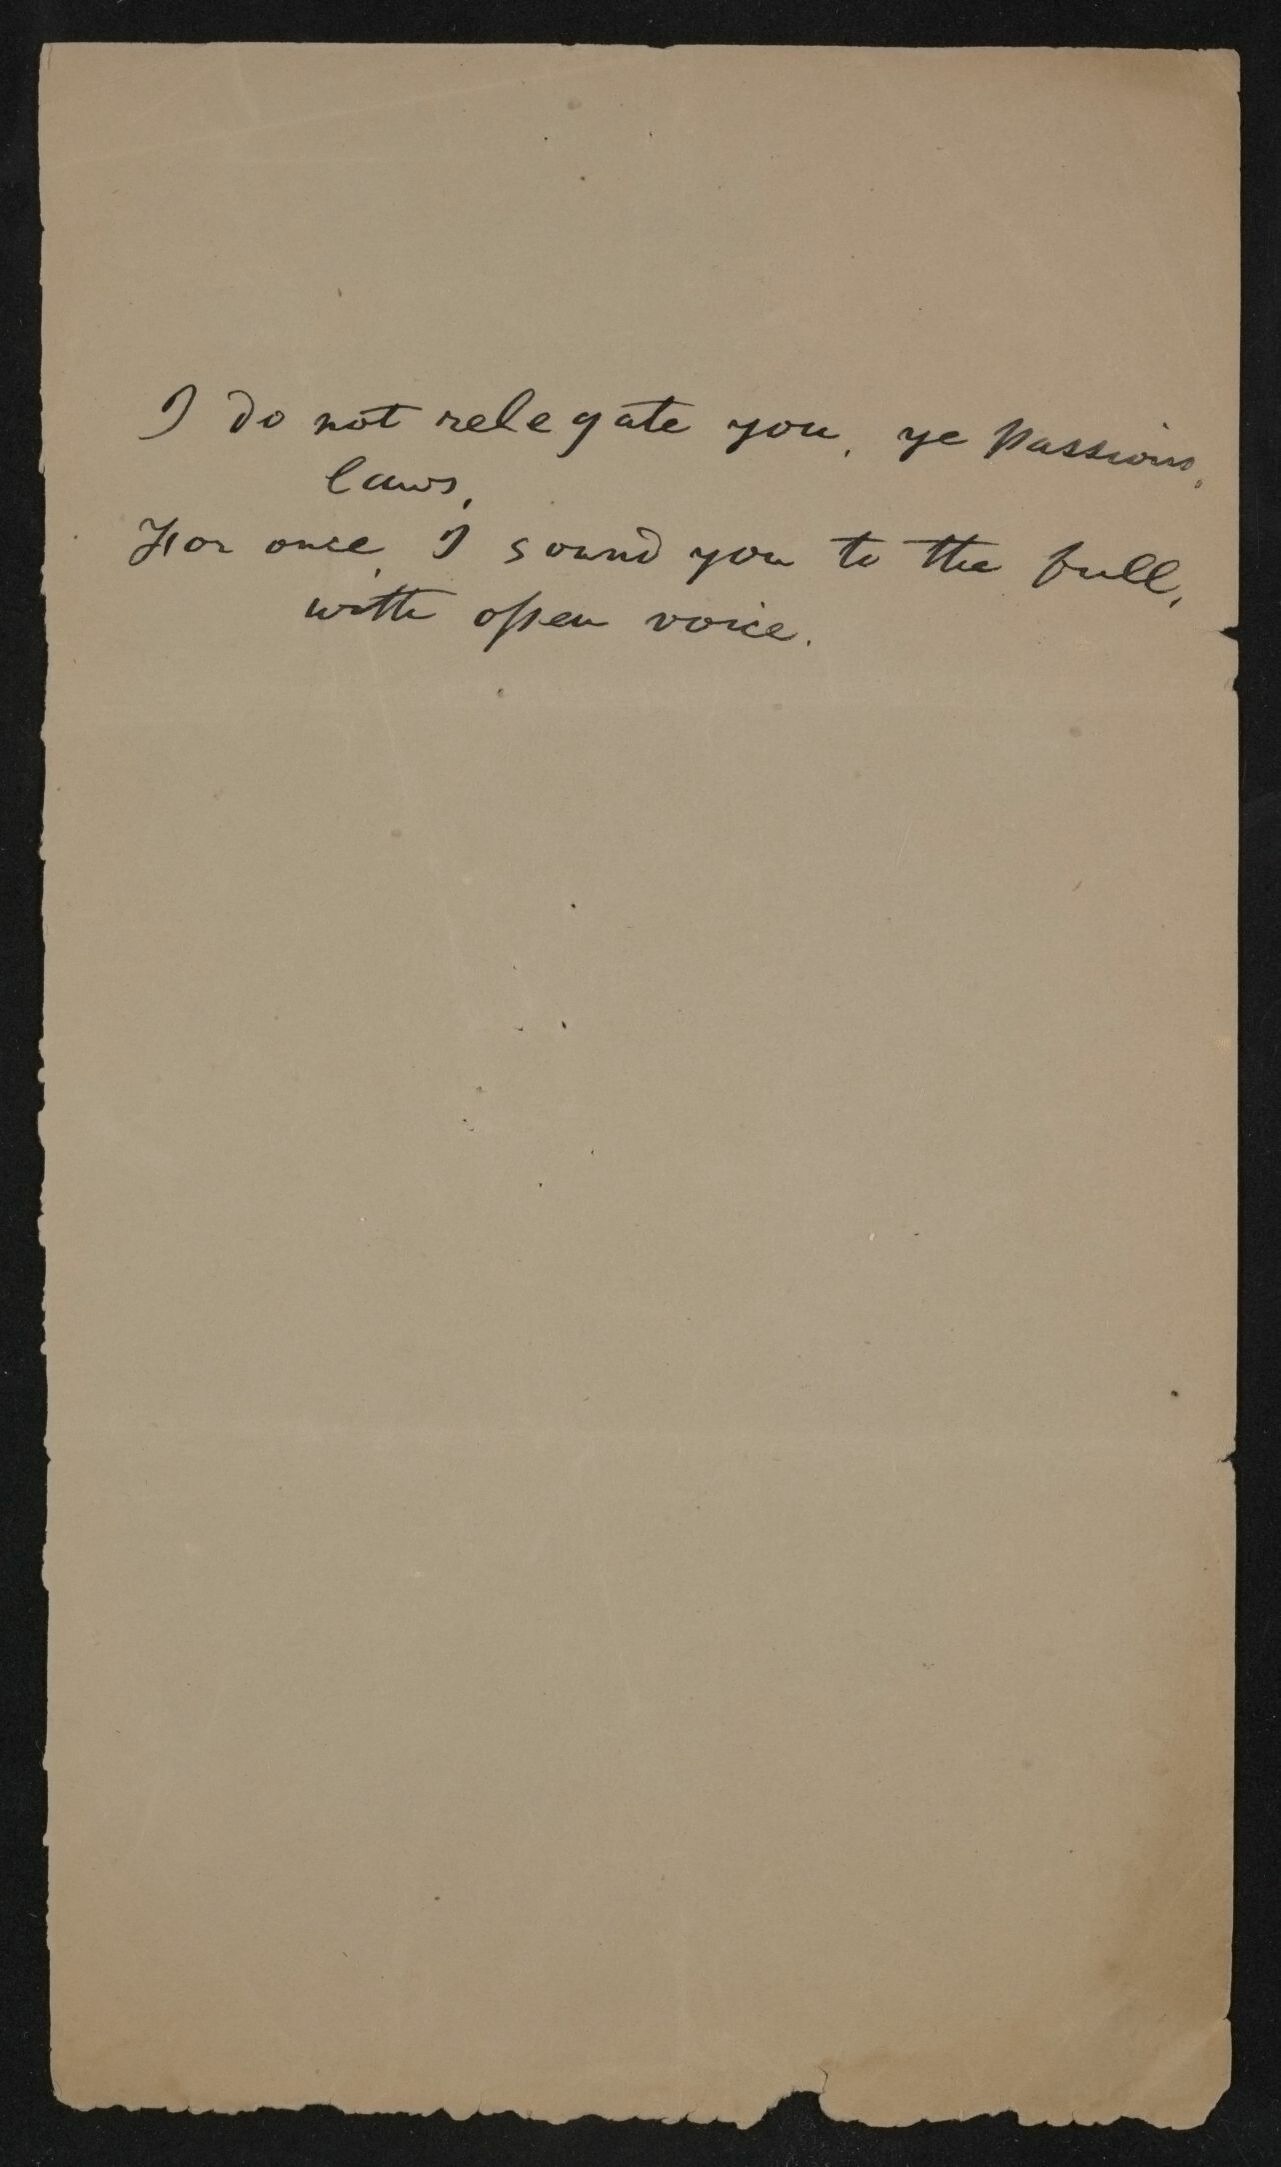 I do not relegate you, ye passions,
laws,
For once, I sound you to the full,
with open voice.